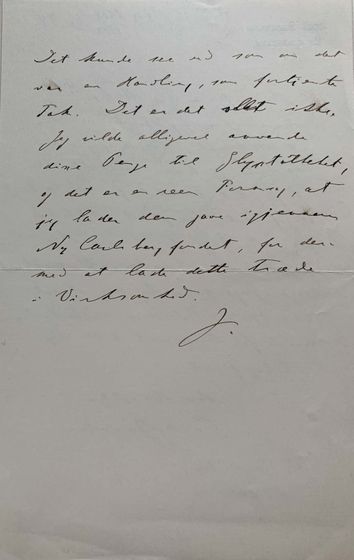 Det kunde see ud som om det
var en Handling, som fortjente
Tak. Det er det slet ikke.
Jeg vilde alligevel anvende
disse Penge til Glyptotheket,
og det er en reen Formsag, at
jeg lader dem gaae igjennem
Ny Carlsbergfondet, for der-
med at lade dette træde
i Virksomhed.
J.